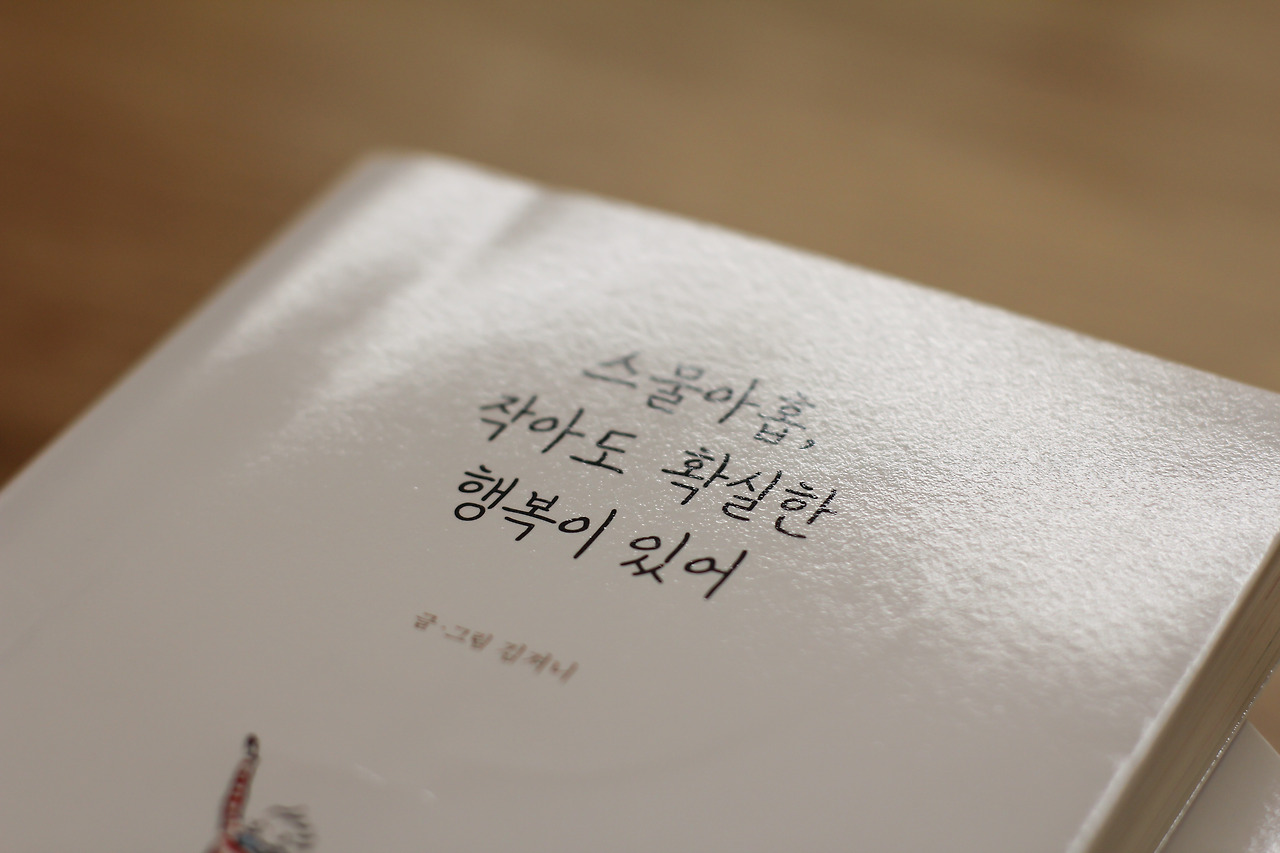 스물아홉,
작아도 확실한
행복이 있어
글·그림 김제니